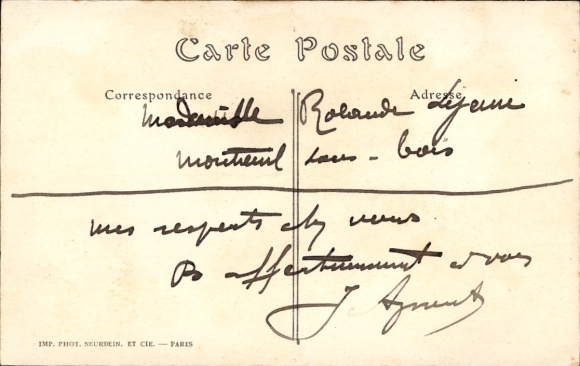 Carte Postale
Correspondance
Adresse
Mademoiselle Rolande
Montreuil sous - bois
mes respects chez vous
affectueusement à vous
J
IMP. PHOT. NEURDEIN. ET CIE. — PARIS